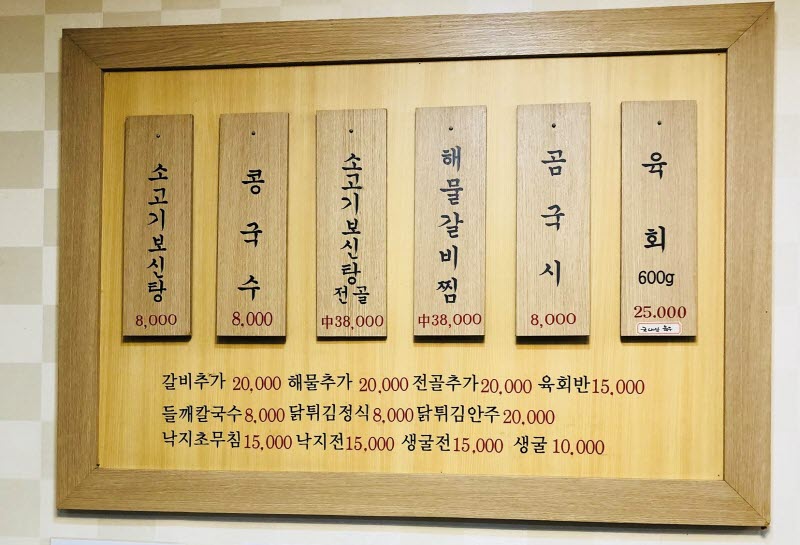 소고기보신탕
8,000
콩국수
8,000
소고기보신탕
전골
中38,000
해물갈비찜
中38,000
곰국시
8,000
육회
600g
25.000
갈비추가 20,000 해물추가 20,000 전골추가 20,000 육회반 15,000
들깨칼국수 8,000 닭튀김정식 8,000 닭튀김안주 20,000
낙지초무침 15,000 낙지전 15,000 생굴전 15,000 생굴 10,000